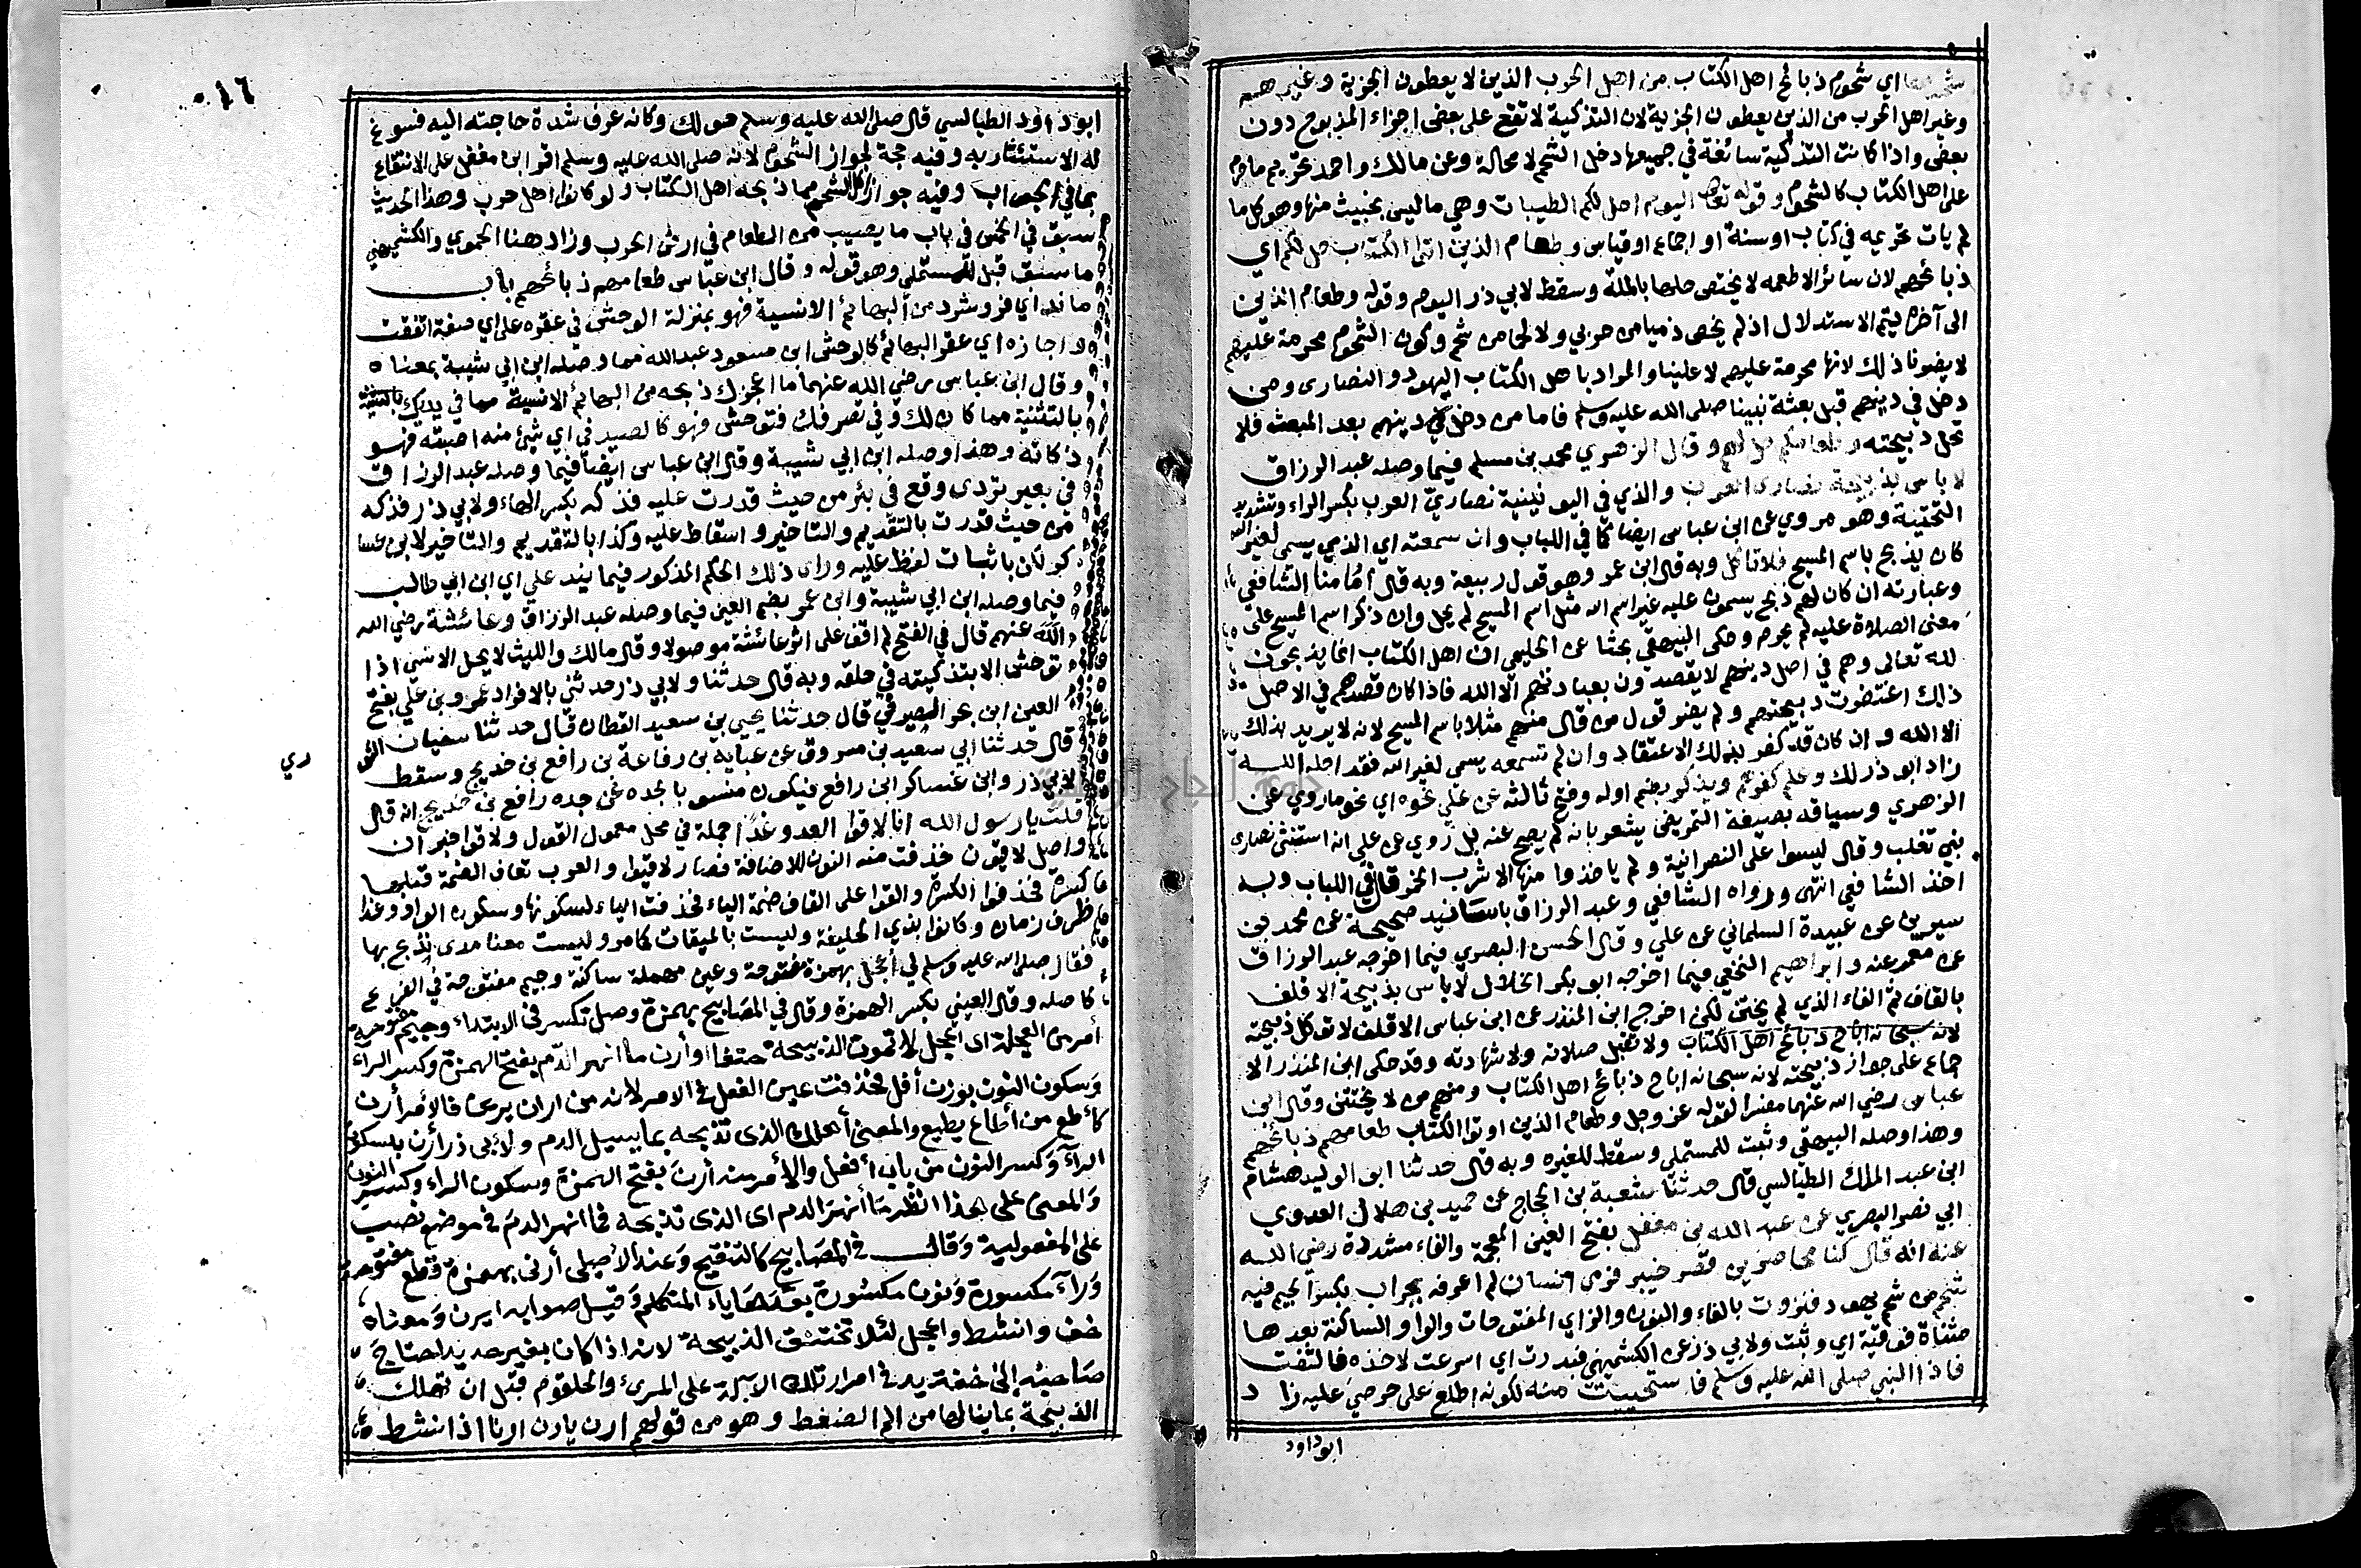 شحومها اي شحوم ذبائح اهل الكتاب من اهل الحرب الذين لا يعطون الجزية وغيرهم
وغير اهل الحرب من الذين يعطون الجزية لان التذكية لا تقع على بعض اجزاء المذبوح دون
بعض واذا كانت التذكية سائغة في جميعها دخل الشحم لا محالة وعن مالك واحمد تحريم ما حرم
على اهل الكتاب كالشحوم وقوله تعالى اليوم احل لكم الطيبات وهي ما ليس بخبيث منها وهو كل ما
لم يات تحريمه في كتاب او سنة او اجماع او قياس وطعام الذين اوتوا الكتاب حل لكم اي
ذبائحهم لان سائر الاطعمه لا يختص حلها بالملة وسقط لابي ذر اليوم وقوله وطعام الذين
الى آخره ليتم الاستدلال اذ لم يخص ذميا من حربي ولا لحما من شحم وكون الشحوم محرمة عليهم
لا يضرنا ذلك لانها محرمة عليهم لا علينا والمراد باهل الكتاب اليهود والنصارى ومن
دخل في دينهم قبل بعثة نبينا صلى الله عليه وسلم فاما من دخل في دينهم بعد المبعث فلا
تحل ذبيحته وطعامكم حل لهم وقال الزهري محمد بن مسلم فيما وصله عبد الرزاق
لا باس بذبيحة نصارى العرب والذي في اليونينية نصاريّ العرب بكسر الراء وتشديد
التحتية وهو مروي عن ابن عباس ايضا كما في اللباب وان سمعته اي الذمي يسمي لغير الله
كان يذبح باسم المسيح فلا تاكل وبه قال ابن عمر وهو قول ربيعة وبه قال امامنا الشافعي
وعبارته ان كان لهم ذبح يسمون عليه غير اسم الله مثل اسم المسيح لم يحل وان ذكر اسم المسيح على
معنى الصلاة عليه لم يحرم وحكى البيهقي بحثا عن الحليمي ان اهل الكتاب انما يذبحون
لله تعالى وهم في اصل دينهم لا يقصدون بعبادتهم الا الله فاذا كان قصدهم في الاصل
ذلك اعتضرت ذبيحتهم ولم يضر قول من قال منهم مثلا باسم المسيح لانه لا يريد بذلك
الا الله وان كان قد كفر بذلك الاعتقاد وان لم تسمعه يسمي لغير الله فقد احله الله
زاد ابو ذر لك وعلم كفرهم ويذكر بضم اوله وفتح ثالثه عن علي نحوه اي نحو ما روي عن
الزهري وسياقه بصيغة التمريض يشعر بانه لم يصح عنه بل روي عن علي انه استثنى نصارى
بني تغلب وقال ليسوا على النصرانية ولم ياخذوا منها الا شرب الخمر قال في اللباب وبه
اخذ الشافعي انتهى ورواه الشافعي وعبد الرزاق باسانيد صحيحة عن محمد بن
سيرين عن عبيدة السلماني عن علي وقال الحسن البصري فيما اخرجه عبد الرزاق
عن معمر عنه وابراهيم النخعي فيما اخرجه ابو بكر الخلال لا باس بذبيحة الاقلف
بالقاف ثم الفاء الذي لم يختتن لكن اخرج ابن المنذر عن ابن عباس الاقلف لا توكل ذبيحته
لانه سبحانه اباح ذبائح اهل الكتاب ولا تقبل صلاته ولا شهادته وقد حكى ابن المنذر الا
جماع على جواز ذبيحته لانه سبحانه اباح ذبائح اهل الكتاب ومنهم من لا يختتن وقال ابن
عباس رضي الله عنهما مفسرا لقوله عز وجل وطعام الذين اوتوا الكتاب طعامهم ذبائحهم
وهذا وصله البيهقي وثبت للمستملي وسقط للغيره وبه قال حدثنا ابو الوليد هشام
ابن عبد الملك الطيالسي قال حدثنا شعبة بن الحجاج عن حميد بن هلال العدوي
ابي نصر البصري عن عبد الله بن مغفل بفتح الغين المعجمة والفاء مشددة رضي الله
عنه انه قال كنا محاصرين قصر خيبر فرمى انسان لم اعرفه بجراب بكسر الجيم فيه
شحم من شحم يهود فنزوت بالفاء والنون والزاي المفتوحات والواو الساكنة بعدها
مثناة فوقية اي وثبت ولابي ذر عن الكشميهني فبدرت اي اسرعت لاخذه فالتفت
فاذا النبي صلى الله عليه وسلم فاستحييت منه لكونه اطلع على حرصي عليه زاد
ابو داود
١٦
ابو داود الطيالسي قال صلى الله عليه وسلم هو لك وكانه عرف شدة حاجته اليه فسوغ
له الاستئثار به وفيه حجة لجواز الشحوم لانه صلى الله عليه وسلم اقر ابن مغفل على الانتفاع
بما في الجراب وفيه جواز اكل الشحم مما ذبحه اهل الكتاب ولو كانوا اهل حرب وهذا الحديث
سبق في الخمس في باب ما يصيب من الطعام في ارض الحرب وزاد هنا الحموي والكشميهني
ما سبق قبل للمستملي وهو قوله وقال ابن عباس طعامهم ذبائحهم باب
ما ند اي فر وشرد من البهائم الانسية فهو بمنزلة الوحش في عقره على اي صفة اتفقت
واجازه اي عقر البهائم كالوحش ابن مسعود عبد الله مما وصله ابن ابي شيبة بمعناه
وقال ابن عباس رضي الله عنهما ما اعجزك ذبحه من البهائم الانسية مما في يديك بالتثنية
بالتثنية مما كان لك وفي تصرفك فتوحش فهو كالصيد في اي شيء منه اصبته فهو
ذكاته وهذا وصله ابن ابي شيبة وقال ابن عباس ايضا فيما وصله عبد الرزاق
في بعير تردى وقع في بئر من حيث قدرت عليه فذكه بكسر الهاء ولابي ذر فذكه
من حيث قدرت بالتقديم والتاخير واسقاط عليه وكذا بالتقديم والتاخير لابن عسا
كر لكن باثبات لفظ عليه وراى ذلك الحكم المذكور فيما يند علي اي ابن ابي طالب
فيما وصله ابن ابي شيبة وابن عمر بضم العين فيما وصله عبد الرزاق وعائشة رضي الله
الله عنهم قال في الفتح لم اقف على اثر عائشة موصولا وقال مالك والليث لا يحل الانسي اذا
توحش الا بتذكيته في حلقه وبه قال حدثنا ولابي ذر حدثني بالافراد عمرو بن علي بفتح
العين ابن بحر البصيرفي قال حدثنا يحيى بن سعيد القطان قال حدثنا سفيان الثو
ري
قال حدثنا ابي سعيد بن مسروق عن عباية بن رفاعة بن رافع بن خديج وسقط
لابي ذر وابن عساكر ابن رافع فيكون منسوبا لجده عن جده رافع بن خديج انه قال
قلت يا رسول الله انا لاقوا العدو غدا جملة في محل معمول القول ولاقوا خبر ان
واصل لاقيون حذفت منه النون للاضافة فصار لاقيوا والعرب تعاف الضمة قبلها
كسرة فحذفوا الكسرة والقوا على القاف ضمة الياء فحذفت الياء لسكونها وسكون الواو وغدا
ظرف زمان وكانوا بذي الحليفة وليست بالميقات كما مر وليست معنا مدى نذبح بها
فقال صلى الله عليه وسلم لي أعجل بهمزة مفتوحة وعين مهملة ساكنة وجيم مفتوحة في الفرع
كاصله وقال العيني بكسر الهمزة وقال في المصابيح بهمزة وصل تكسر في الابتداء وجيم مفتوحة
أمر من العجلة اى اعجل لا تموت الذبيحة حتفا او أرن ما انهر الدم بفتح الهمزة وكسر الراء
وسكون النون بوزن أفل فحذفت عين الفعل في الامر لانه من اران يرين فالأمر أرن
كأطع من أطاع يطيع والمعنى أهلك الذى تذبحه بما يسيل الدم ولأبى ذر أرن بسكون
الراء وكسر النون من باب أفعل والأمر منه أرن بفتح الهمزة وسكون الراء وكسر النون
والمعنى على هذا انظر ما أنهر الدم اى الذى تذبحه فما انهر الدم فى موضع نصب
على المفعولية وقال فى المصابيح كالتنقيح وعند الأصيلى أرنى بهمزة قطع مفتوحة
وراء مكسورة ونون مكسورة بعدها ياء المتكلم وقيل صوابه ايرن ومعناه
خف وانشط واعجل لئلا تختنق الذبيحة لانه اذا كان بغير حديد احتاج
صاحبه إلى خفة يد فى امرار تلك الآلة على المرئ والحلقوم قبل ان تهلك
الذبيحة بما ينالها من الم الضغط وهو من قولهم ارن يارن ارنا اذا نشط